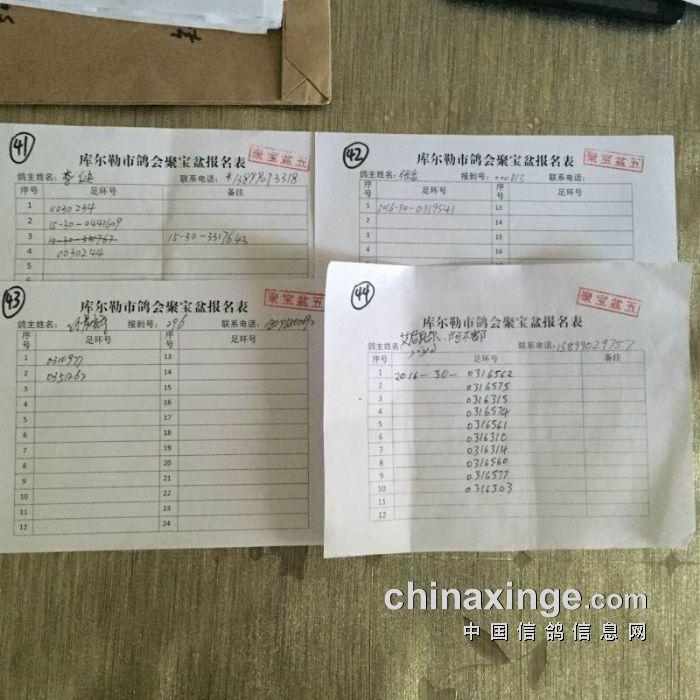 41
库尔勒市鸽会聚宝盆报名表
聚宝盆五
鸽主姓名: 李 联系电话:
序号 足环号 备注
1 0030234
2 15-30-0441609
3 15-30-331767 15-30-3317643
4 0030244
42
库尔勒市鸽会聚宝盆报名表
聚宝盆五
鸽主姓名: 报到号: 000813 联系电话:
序号 足环号 序号 足环号
1 2016-30-0319541 13
2
3
4
43
库尔勒市鸽会聚宝盆报名表
聚宝盆五
鸽主姓名: 报到号: 296 联系电话:
序号 足环号 序号 足环号
1 0310977 13
2 0351262 14
3 15
4 16
5 17
6 18
7 19
8 20
9 21
10 22
11 23
12 24
44
库尔勒市鸽会聚宝盆报名表
聚宝盆五
鸽主姓名: 联系电话: 13899029757
序号 足环号 备注
1 2016-30-0316562
2 0316575
3 0316315
4 0316574
5 0316561
6 0316310
7 0316314
8 0316560
9 0316577
10 0316303
11
12
chinaxinge.com
中国信鸽信息网